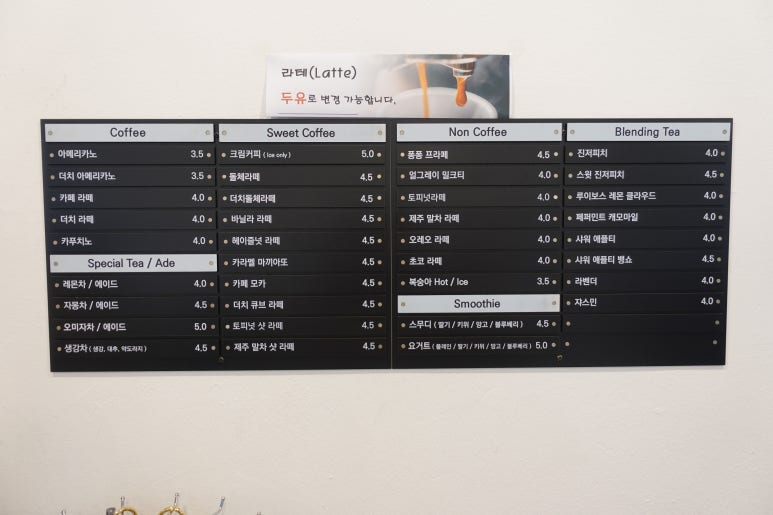 라테(Latte)
두유로 변경 가능합니다.
Coffee
아메리카노 3.5
더치 아메리카노 3.5
카페 라떼 4.0
더치 라떼 4.0
카푸치노 4.0
Special Tea / Ade
레몬차 / 에이드 4.0
자몽차 / 에이드 4.5
오미자차 / 에이드 5.0
생강차 ( 생강, 대추, 약도라지 ) 4.5
Sweet Coffee
크림커피 ( Ice only ) 5.0
돌체라떼 4.5
더치돌체라떼 4.5
바닐라 라떼 4.5
헤이즐넛 라떼 4.5
카라멜 마끼아또 4.5
카페 모카 4.5
더치 큐브 라떼 4.5
토피넛 샷 라떼 4.5
제주 말차 샷 라떼 4.5
Non Coffee
퐁퐁 프라페 4.5
얼그레이 밀크티 4.0
토피넛라떼 4.0
제주 말차 라떼 4.0
오레오 라떼 4.0
초코 라떼 4.0
복숭아 Hot / Ice 3.5
Smoothie
스무디 ( 딸기 / 키위 / 망고 / 블루베리 ) 4.5
요거트 ( 플레인 / 딸기 / 키위 / 망고 / 블루베리 ) 5.0
Blending Tea
진저피치 4.0
스윗 진저피치 4.5
루이보스 레몬 클라우드 4.0
페퍼민트 캐모마일 4.0
샤워 애플티 4.0
샤워 애플티 뱅쇼 4.5
라벤더 4.0
쟈스민 4.0